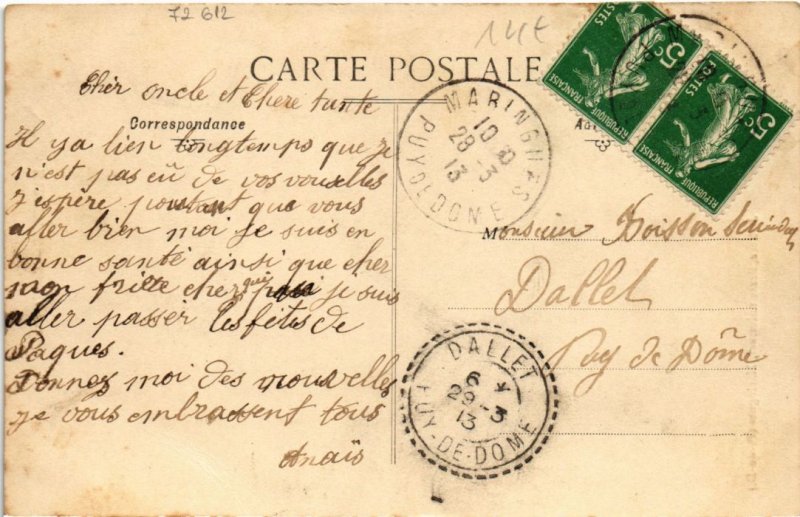 72 612
14€
CARTE POSTALE
Cher oncle et Chere tante
Correspondance
Il ya lien longtemps que je
n'est pas eû de vos vouvelles
j'espère pourtant que vous
aller bien moi je suis en
bonne santé ainsi que cher
mon chez qui je suis
aller passer les fêtes de
Pâques.
Donnez moi des nouvelles
je vous embrassent tous
Anaïs
MARINGUES
10
28-3
13
PUY-DE-DOME
5c
POSTES
REPUBLIQUE FRANÇAISE
5c
REPUBLIQUE FRANÇAISE
Monsieur Boisson
Dallet
Puy de Dôme
DALLET
6
29-3
13
PUY-DE-DOME